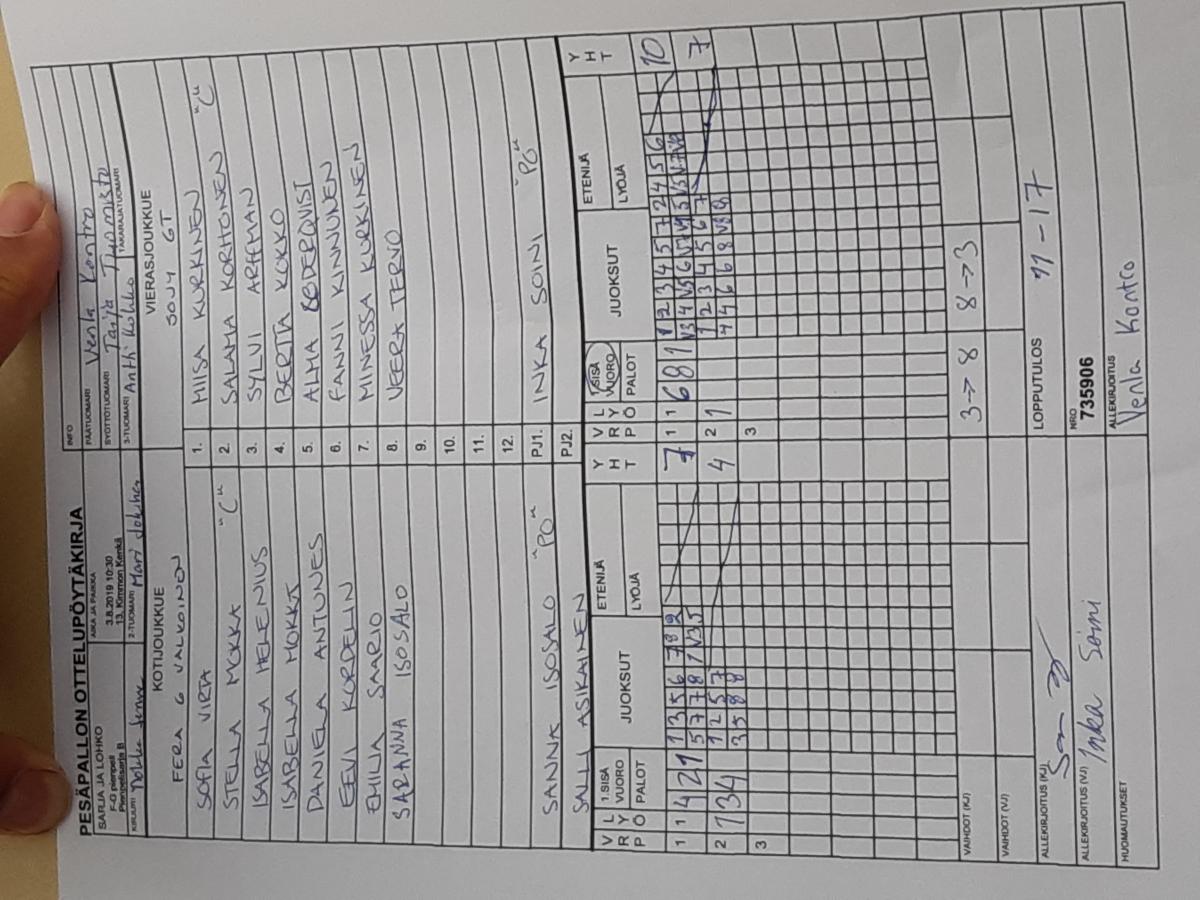 PESÄPALLON OTTELUPÖYTÄKIRJA
SARJA JA LOHKO
F-G pienpeli
Pienpelisarja B
AIKA JA PAIKKA
3.8.2019 10:30
13. Kimmon Kenkä
INFO
PÄÄTUOMARI Venla Kontro
SYÖTTÖTUOMARI Tarja Tuomisto
KIRJURI
2-TUOMARI Mari
3-TUOMARI Antti Kokko
TAKARAJATUOMARI
KOTIJOUKKUE
VIERASJOUKKUE
FERA G VALKOINEN
SOJY GT
SOFIA VIRTA
1. MIISA KURKINEN "C"
STELLA MOKKA "C"
2. SALAMA KORHONEN
ISABELLA HELENIUS
3. SYLVI ARFFMAN
ISABELLA MOKKA
4. BERTTA KOKKO
DANIELA ANTUNES
5. ALMA CEDERQVIST
EEVI KORDELIN
6. FANNI KINNUNEN
EMILIA SAARIO
7. MINESSA KURKINEN
SARANNA ISOSALO
8. VEERA TERVO
9.
10.
11.
12.
SANNA ISOSALO "PO"
PJ1. INKA SOINI "PO"
SALLI ASIKAINEN
PJ2.
V R P L Y Ö 1.SISÄ VUORO PALOT JUOKSUT ETENIJÄ LYÖJÄ Y H T
V R P L Y Ö 1.SISÄ VUORO PALOT JUOKSUT ETENIJÄ LYÖJÄ Y H T
1 1 4 2 1 1 3 5 6 7 8 2 7
5 7 7 8 1 3 5
1 1 6 8 1 1 2 3 4 5 7 2 4 5 6 10
2 1 3 4 1 2 5 7 4
3 5 8 8
2 1 1 2 3 4 5 6 7 7
4 4 6 6 8 8
3
3
VAIHDOT (KJ)
3->8 8->3
VAIHDOT (VJ)
ALLEKIRJOITUS (KJ)
LOPPUTULOS 11-17
ALLEKIRJOITUS (VJ) Inka Soini
NRO
735906
HUOMAUTUKSET
ALLEKIRJOITUS
Venla Kontro